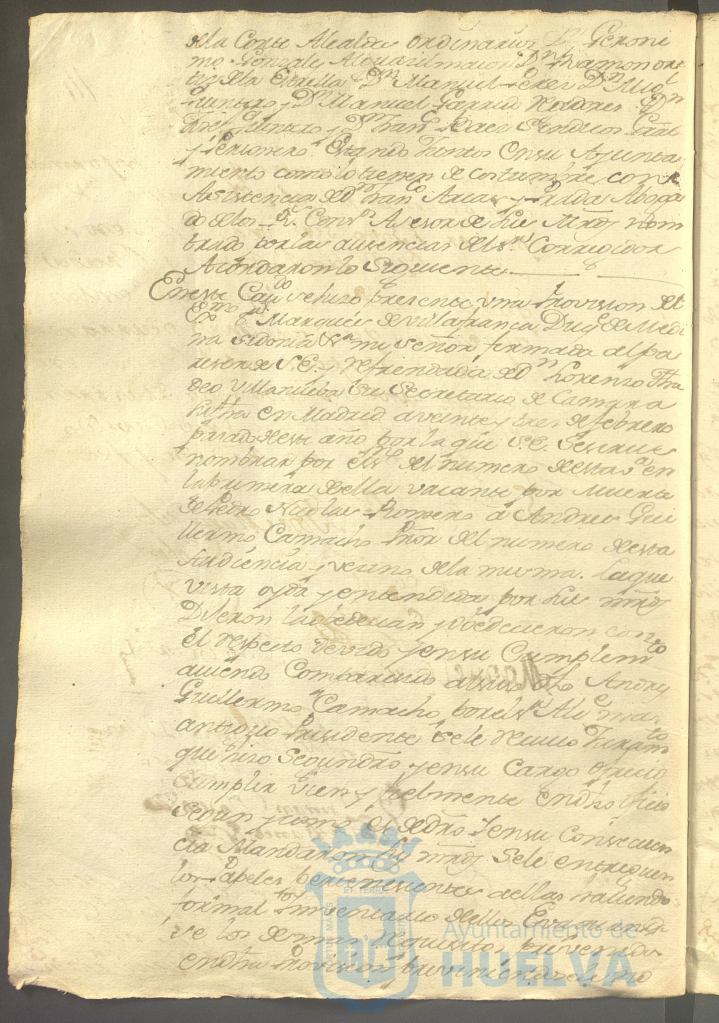 de la Corte Alcaldes ordinarios Dn Geroni
mo Gonzales Alguacil maior Dn Ramon or
tiz de la Estrella Dn Manuel Perez Dn
Quintero y Dn Manuel Garrido Rexidores Dn
Quintero y Dn Franco Saez Sindicos Gral
y Personero estando juntos en su Ayunta
miento como lo tienen de costumbre con
Asistencia de Dn Franco Arias y Prada Aboga
do de los Rs Consos Asesor de sus Mrds nom
brado por las ausencias del Sr Corregidor
Acordaron lo siguiente
En este Cavdo se hizo presente una Provision del
Exmo Sr Marques de Villafranca Duq de Medi
na Sidonia mi señor firmada al pa
rezer de S.E. y refrendada de Dn Lorenzo Tha
deo Villanueva su Secretario de Camara
su fha en Madrid a veinte y tres de febrero
pasado de este año por la que S.E. se sirve
nombrar por del numero de esta Va en
la primera de ella vacante por muerte
de Pedro Nicolas Romero a Andres Gui
llermo Camacho Pror del numero de esta
Audiencia y vecino de la misma. La que
vista oyda y entendida por sus mrds
Dijeron la obedecian y obedecieron con
el respecto devido y en su Cumplimto
aviendo Comparecido el dho Andres
Guillermo Camacho, por el Sr Alce mas
antiguo Presidente se le recivio Juramto
que hizo segun dro y en su Cargo ofrecio
Cumplir vien y fielmente en dho oficio
segun y como es de dro Y en su Consecuen
cia Mandaron sus mrds se le entreguen
los Papeles pertenecientes a ellas haciendo
formal Imventario de ellos
ve los demas requisitos prevenidos
en dha Provision previniendosele no
Ayuntamiento de
HUELVA